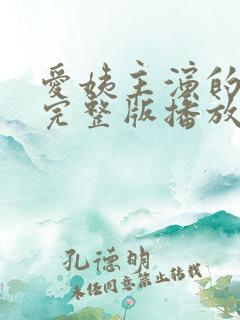 爱姨主演的
完整版播放
孔德明
未经同意禁止转载